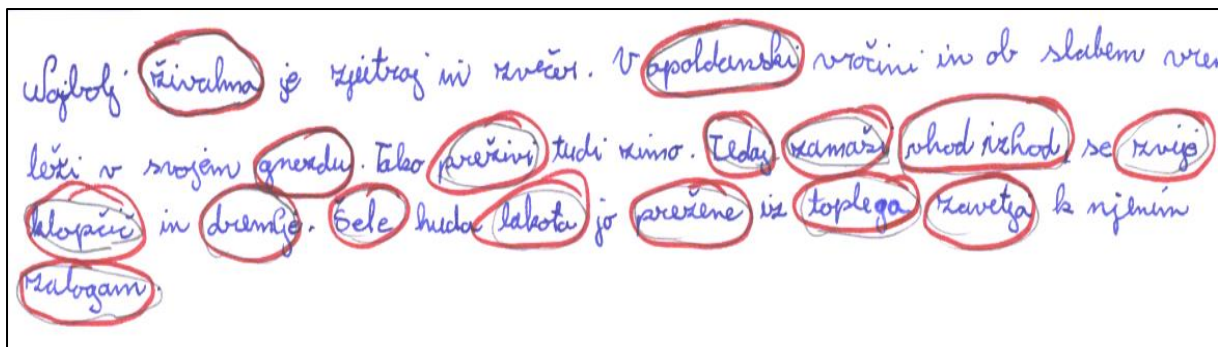 Najbolj živahna je zjutraj in zvečer. V apoldanski vročini in ob slabem vre
leži v svojem gnezdu. Tako preživi tudi zimo. Tedaj zamaši vhod izhod, se zvije
klopčič in dremlje. Šele huda lakota jo prežene iz toplega zavetja k njenim
zalogam.